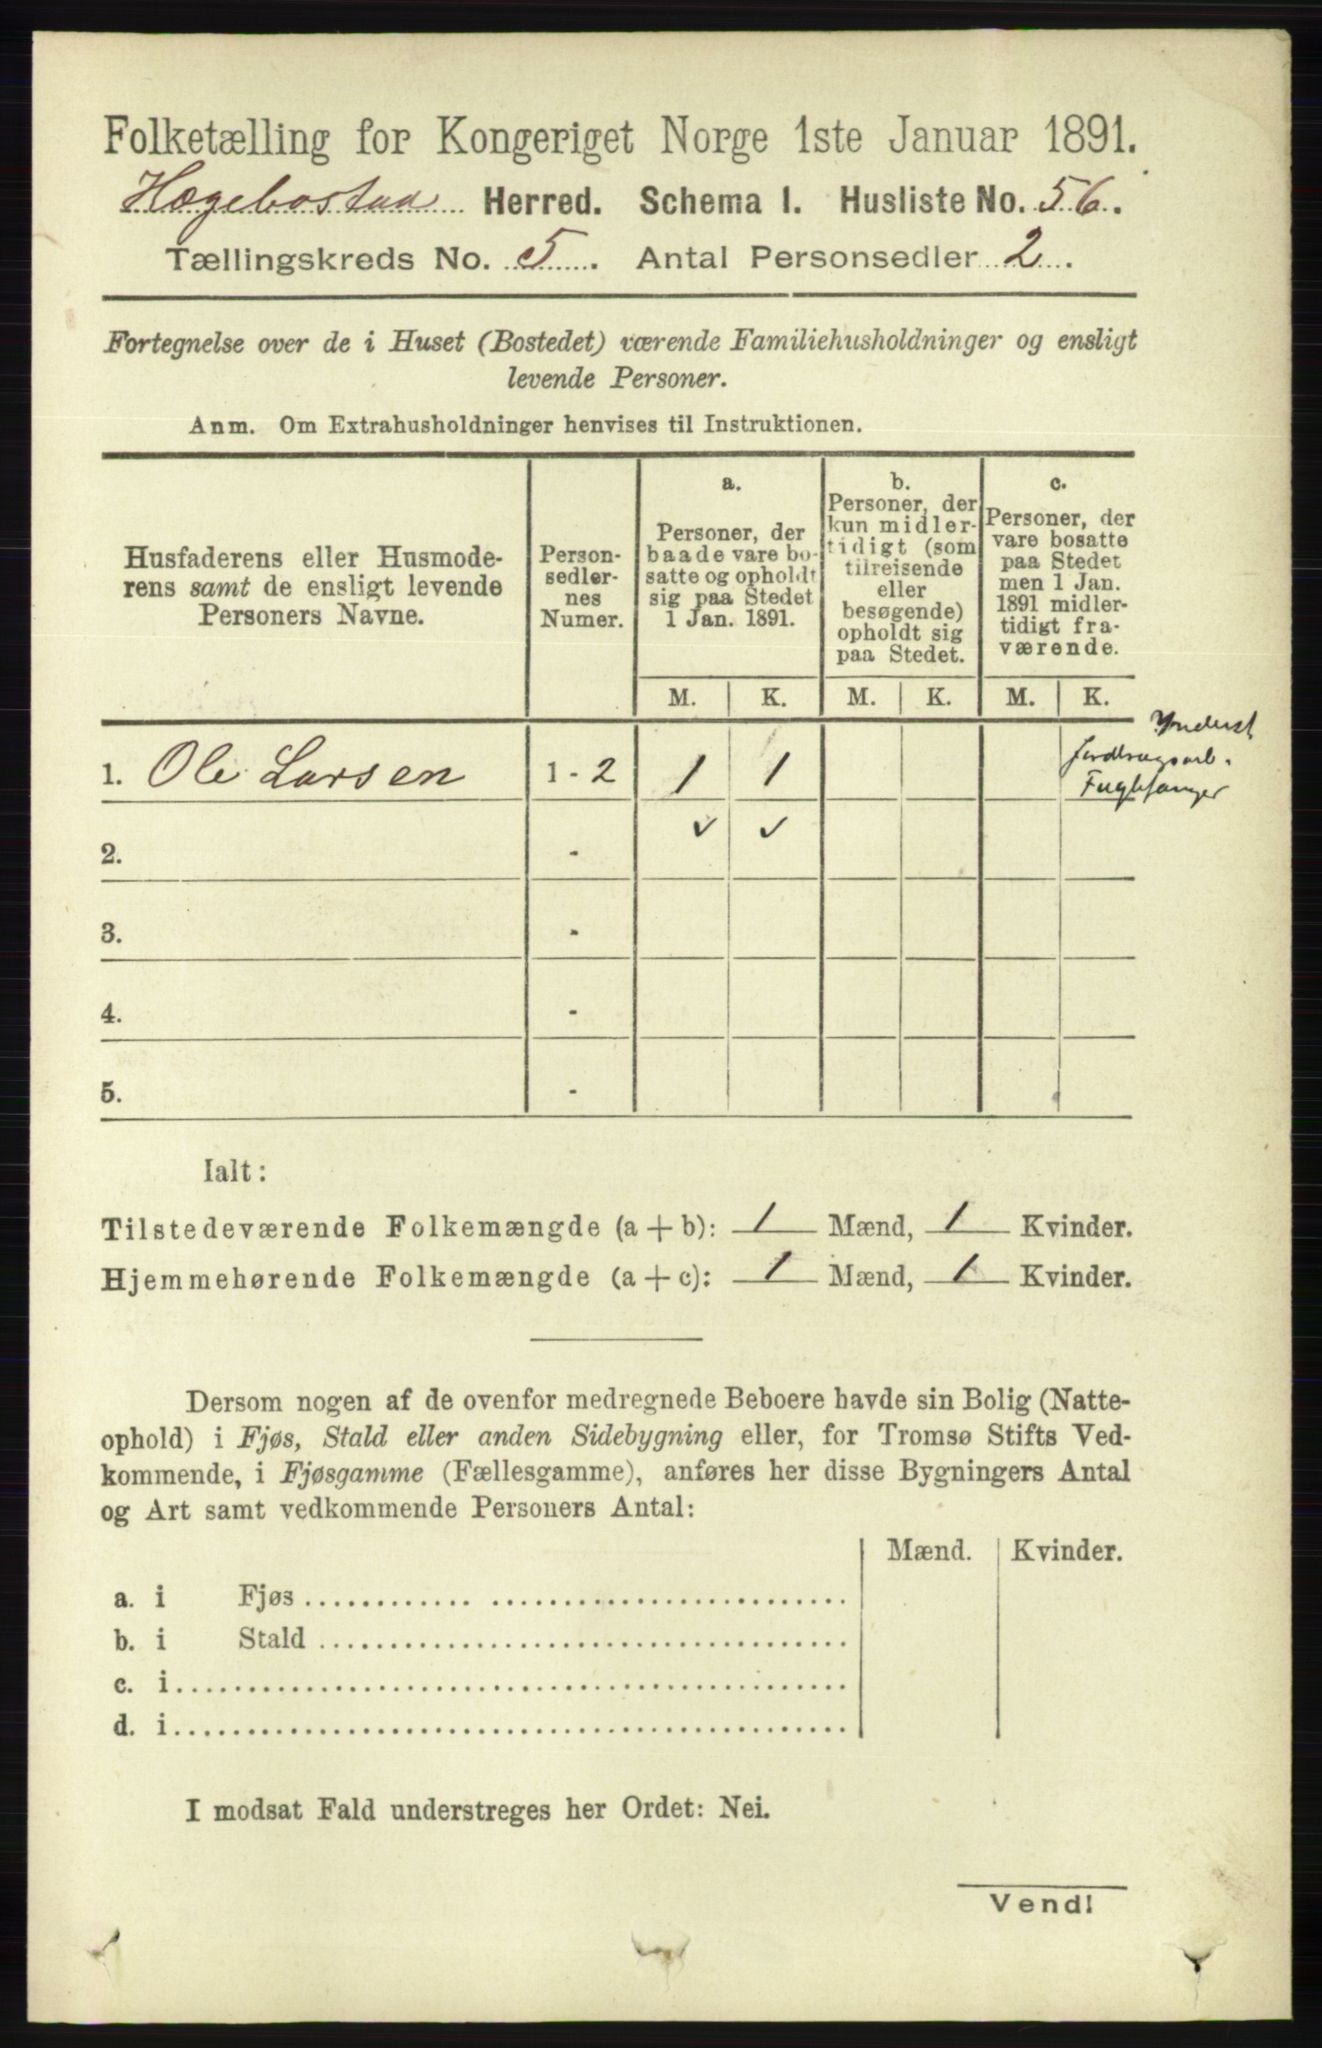 Folketælling for Kongeriget Norge 1ste Januar 1891.
Hægebostad Herred. Schema I. Husliste No. 56.
Tællingskreds No. 5. Antal Personsedler 2.
Fortegnelse over de i Huset (Bostedet) værende Familiehusholdninger og ensligt
levende Personer.
Anm. Om Extrahusholdninger henvises til Instruktionen.
Husfaderens eller Husmode-
rens samt de ensligt levende
Personers Navne.
Person-
sedler-
nes
Numer.
a.
Personer, der
baade vare bo-
satte og opholdt
sig paa Stedet
1 Jan. 1891.
b.
Personer, der
kun midler-
tidigt (som
tilreisende
eller
besøgende)
opholdt sig
paa Stedet.
c.
Personer, der
vare bosatte
paa Stedet
men 1 Jan.
1891 midler-
tidigt fra-
værende.
M. K. M. K. M. K.
Inderst
jordbrugsarb.
Fuglefanger
1. Ole Larsen 1 - 2 1 1
✓ ✓
2. -
3. -
4. -
5. -
Ialt:
Tilstedeværende Folkemængde (a + b): 1 Mænd, 1 Kvinder.
Hjemmehørende Folkemængde (a + c): 1 Mænd, 1 Kvinder.
Dersom nogen af de ovenfor medregnede Beboere havde sin Bolig (Natte-
ophold) i Fjøs, Stald eller anden Sidebygning eller, for Tromsø Stifts Ved-
kommende, i Fjøsgamme (Fællesgamme), anføres her disse Bygningers Antal
og Art samt vedkommende Personers Antal:
Mænd. Kvinder.
a. i Fjøs
b. i Stald
c. i
d. i
I modsat Fald understreges her Ordet: Nei.
Vend!